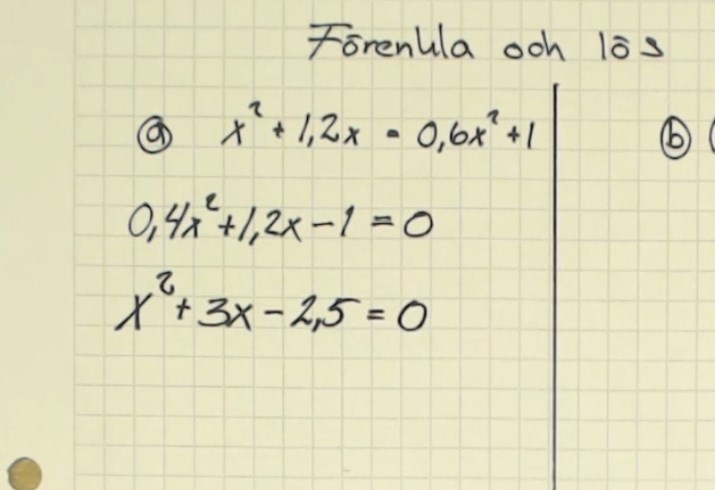 Förenkla och lös
ⓐ x² + 1,2x = 0,6x² + 1
ⓑ (
0,4x² + 1,2x − 1 = 0
x² + 3x − 2,5 = 0